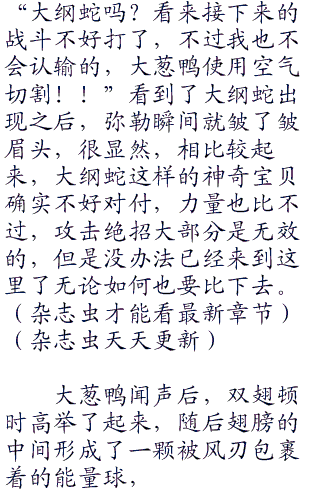 “大纲蛇吗？看来接下来的
战斗不好打了，不过我也不
会认输的，大葱鸭使用空气
切割！！”看到了大纲蛇出
现之后，弥勒瞬间就皱了皱
眉头，很显然，相比较起
来，大纲蛇这样的神奇宝贝
确实不好对付，力量也比不
过，攻击绝招大部分是无效
的，但是没办法已经来到这
里了无论如何也要比下去。
（杂志虫才能看最新章节）
（杂志虫天天更新）
大葱鸭闻声后，双翅顿
时高举了起来，随后翅膀的
中间形成了一颗被风刃包裹
着的能量球，